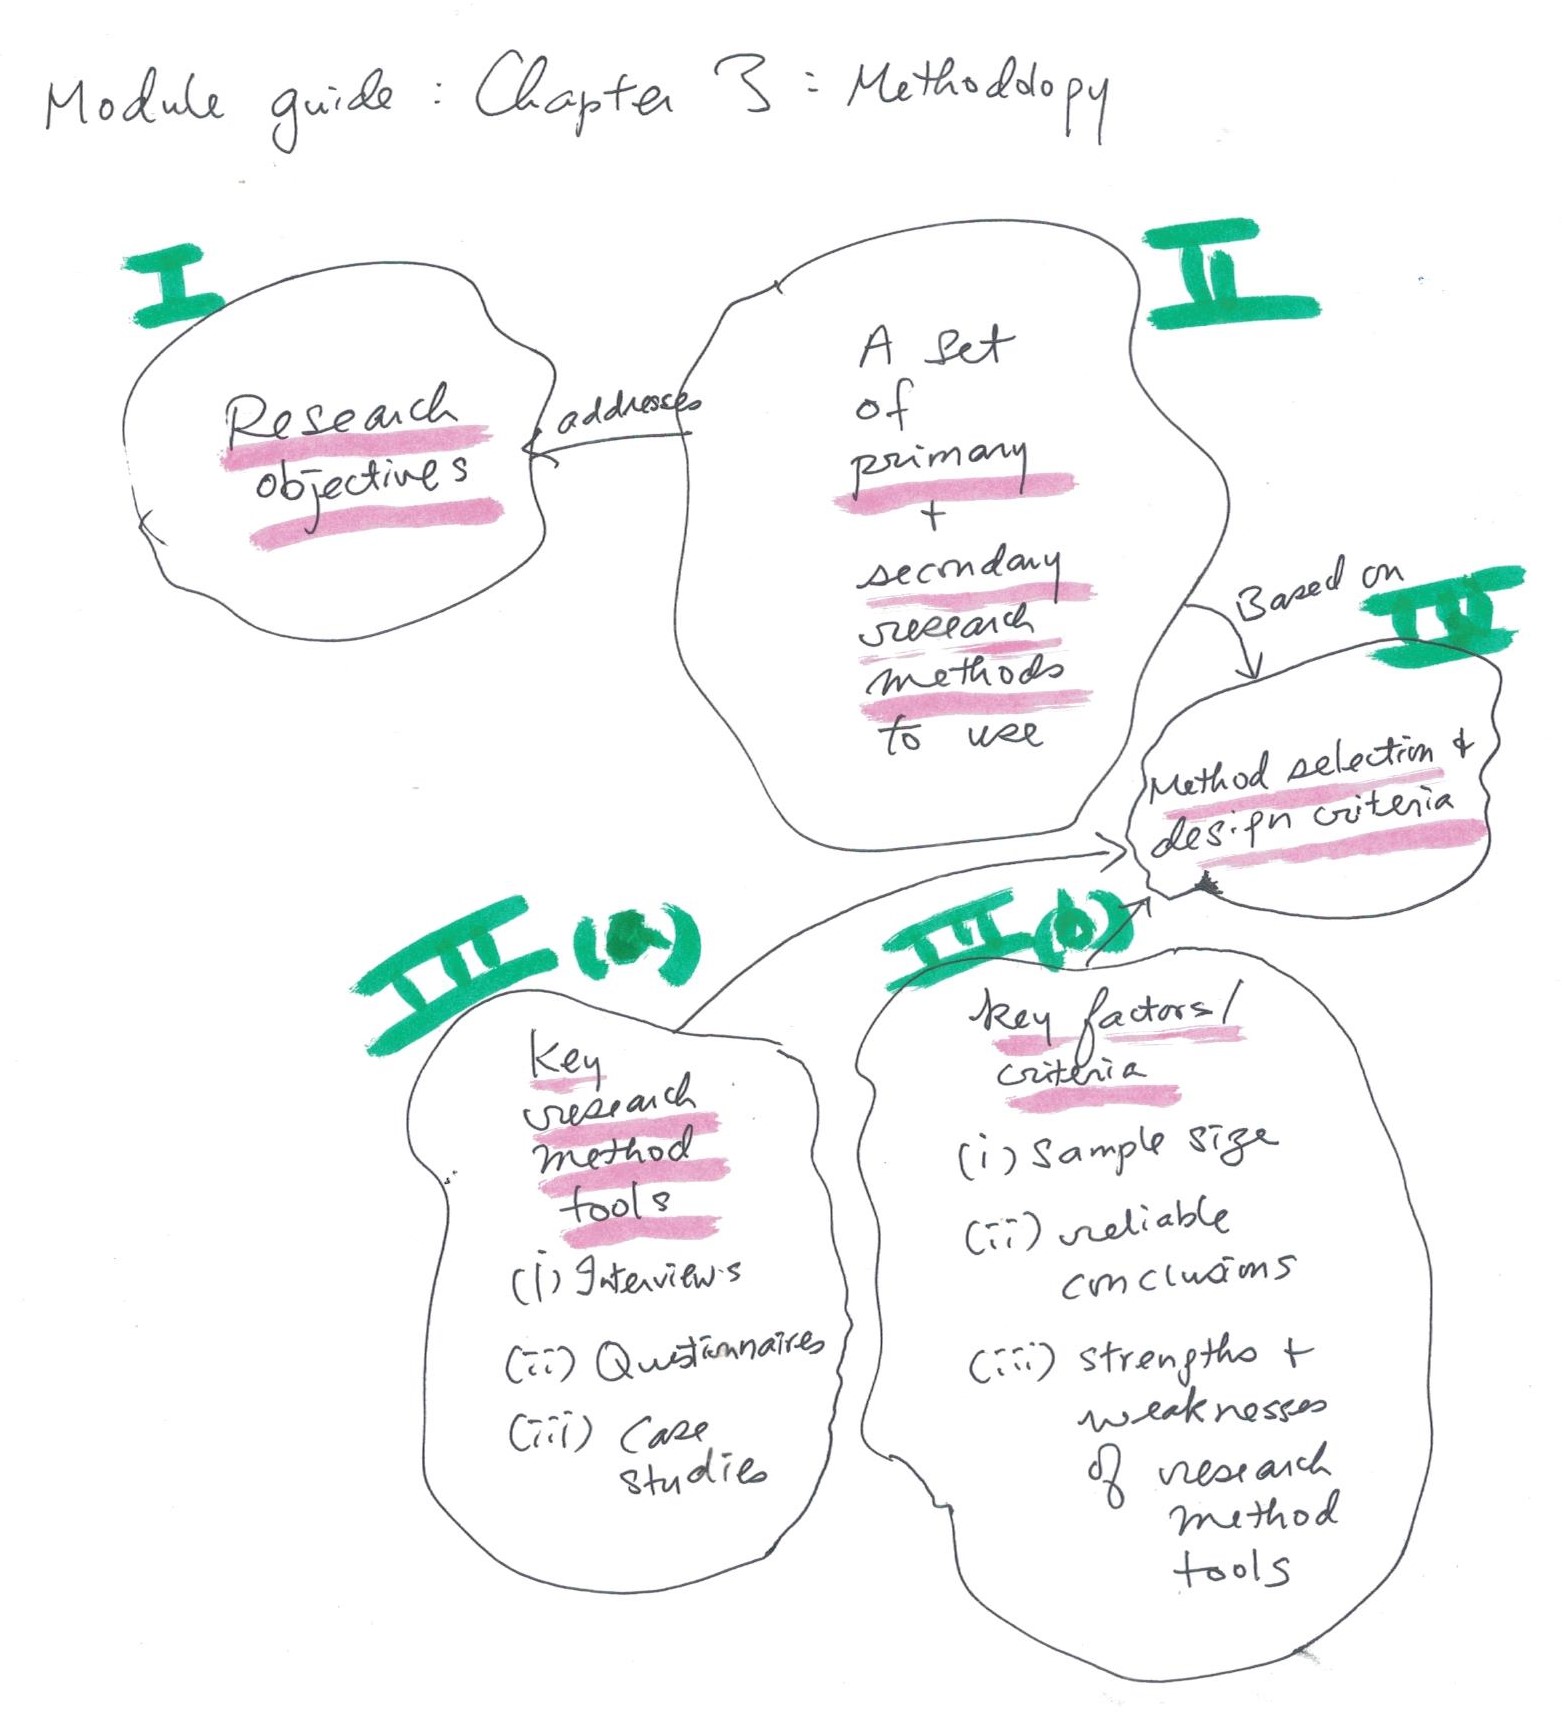 Module guide : Chapter 3 : Methodology
I
Research
objectives
addresses
II
A set
of
primary
+
secondary
research
methods
to use
Based on
IV
Method selection &
design criteria
III (a)
Key
research
method
tools
(i) Interviews
(ii) Questionnaires
(iii) Case
studies
III (b)
Key factors/
criteria
(i) Sample size
(ii) reliable
conclusions
(iii) strengths +
weaknesses
of research
method
tools